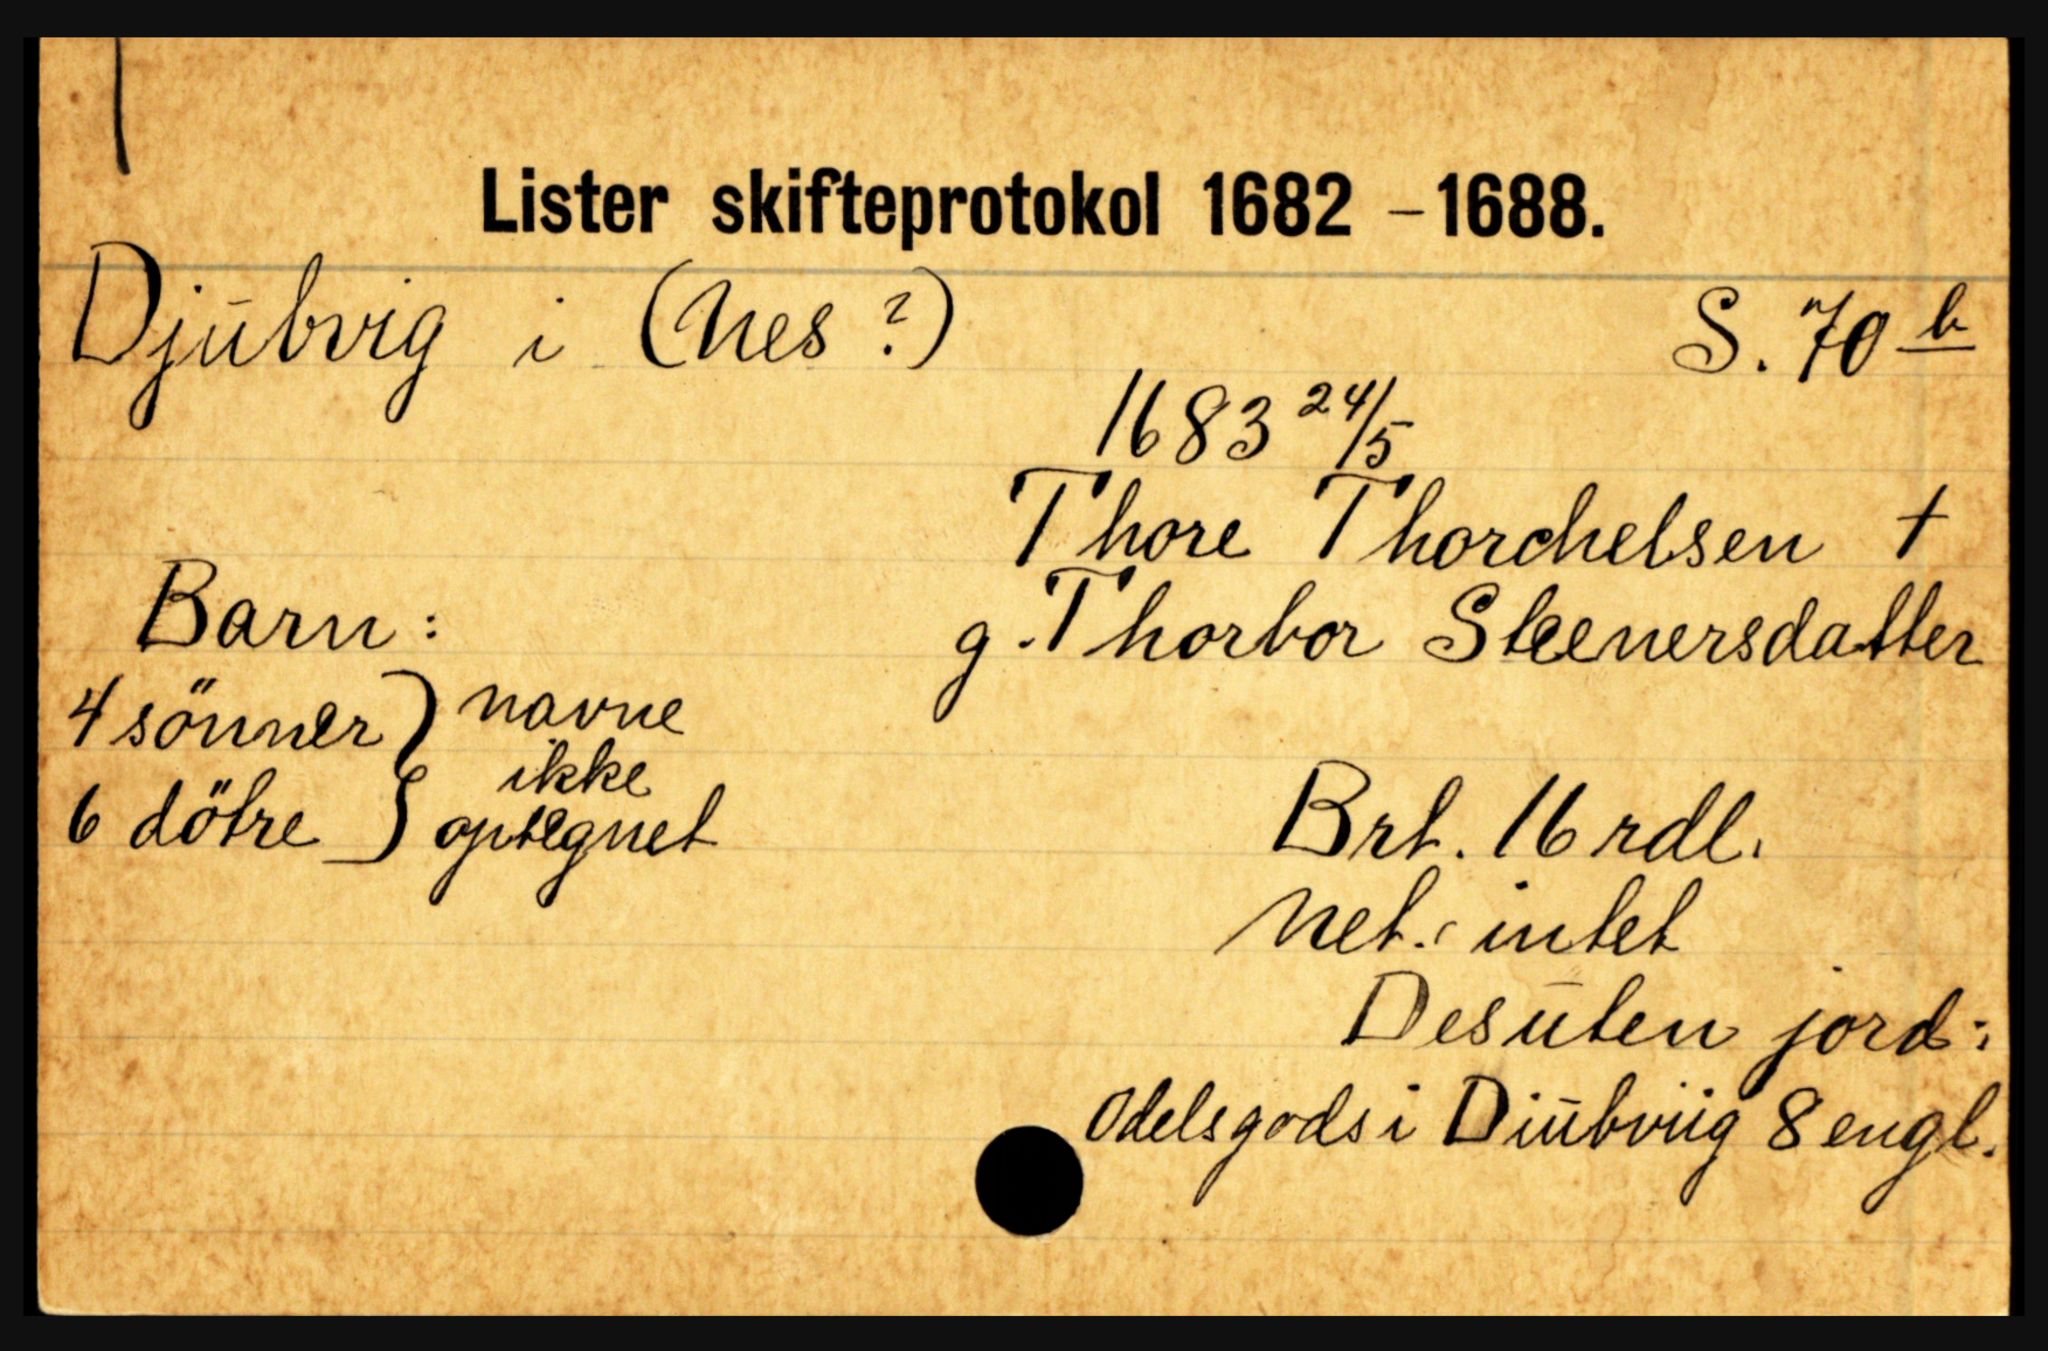 Lister skifteprotokol 1682 - 1688.
Djubvig i (Nes ?) S. 70 b
1683 24/5
Thore Thorchelsen †
g. Thorbor Steenersdatter
Barn:
4 sönner } navne
ikke
6 dötre } optegnet
Brt. 16 rdl.
Net.: intet
Desuten jord:
Odelsgods i Diubviig 8 engl.